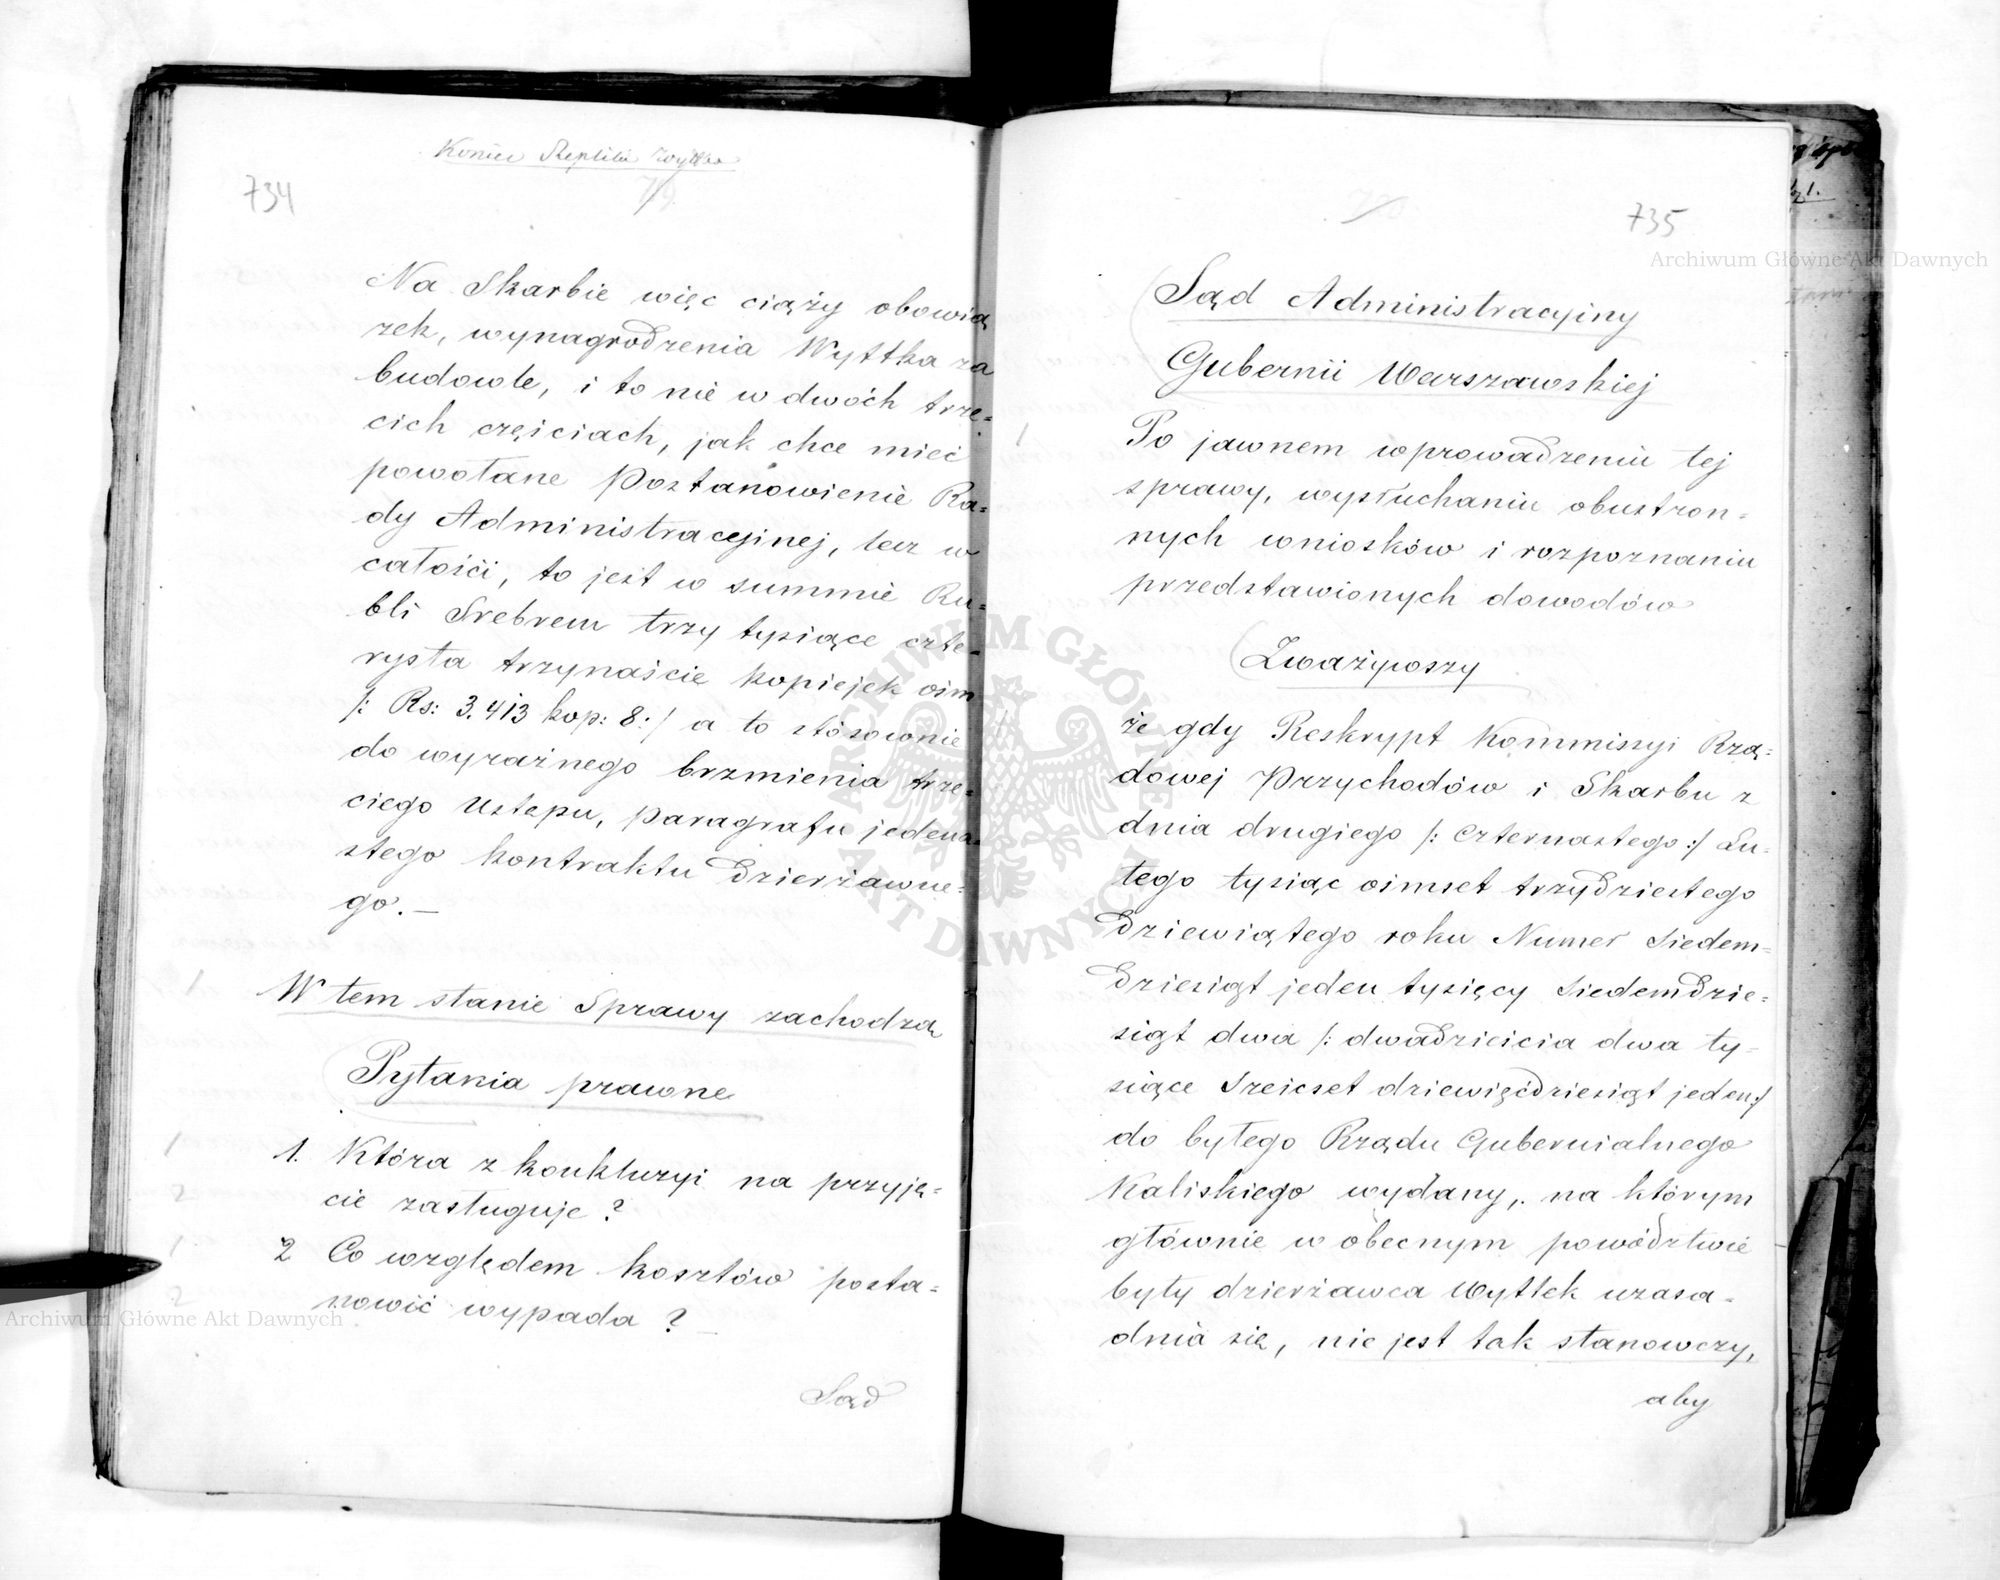 Koniec Repliki Wyttka
734
79
Na Skarbie więc ciąży obowią
zek, wynagrodzenia Wyttka za
budowle, i to nie w dwóch trze=
cich częściach, jak chce mieć
powołane Postanowienie Ra=
dy Administracyjnej, lecz w
całości, to jest w summie Ru=
bli Srebrem trzy tysiące czte=
rysta trzynaście kopiejek ośm
/: Rs: 3.413 kop: 8:/ a to stósownie
do wyraźnego brzmienia trze=
ciego Ustępu, paragrafu jedena=
stego Kontraktu dzierżawne=
go.—
W tem stanie Sprawy zachodzą
Pytania prawne
1. Która z konkluzyi na przyję=
cie zasługuje?
2 Co względem kosztów posta=
nowić wypada?—
Sąd
735
Sąd Administracyjny
Gubernii Warszawskiej
Po jawnem wprowadzeniu tej
sprawy, wysłuchaniu obustron=
nych wniosków i rozpoznaniu
przedstawionych dowodów
Zważywszy
że gdy Reskrypt Kommissyi Rzą=
dowej Przychodów i Skarbu z
dnia drugiego /: Czternastego:/ Lu=
tego tysiąc ośmset trzydziestego
dziewiątego roku Numer Siedem=
dziesiąt jeden tysięcy Siedemdzie=
siąt dwa /: dwadzieścia dwa ty=
siące Sześćset dziewięćdziesiąt jeden:/
do byłego Rządu Gubernialnego
Kaliskiego wydany, na którym
głównie w obecnym powództwie
były dzierżawca Wyttek uzasa=
dnia się, nie jest tak stanowczy,
aby
Archiwum Główne Akt Dawnych
Archiwum Główne Akt Dawnych
ARCHIWUM GŁÓWNE AKT DAWNYCH